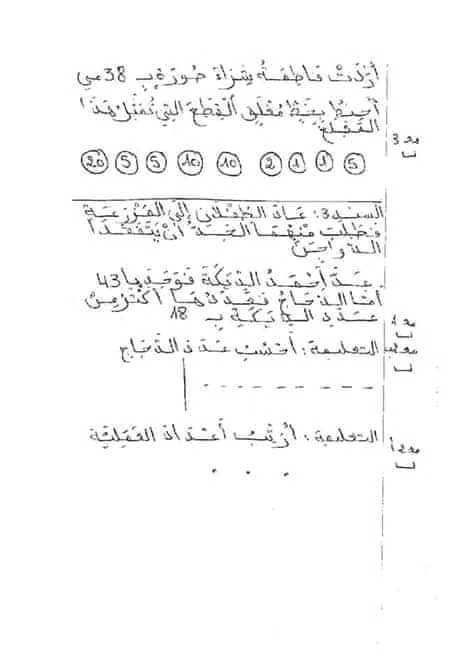 أرادت فاطمة شراء صورة بـ 38 مي
أحيط بخط مغلق القطع التي تمثل هذا
المبلغ
مع 3
20 5 5 10 10 2 1 1 5
السند 3: عاد الطفلان إلى المزرعة
فطلبت منهما الجدة أن يتفقدا
الدواجن
عد أحمد الديكة فوجد بها 43
أما الدجاج فعددها أكثر من
عدد الديكة بـ 18
التعليمة: أحسب عدد الدجاج
التعليمة: أرتب أعداد العملية